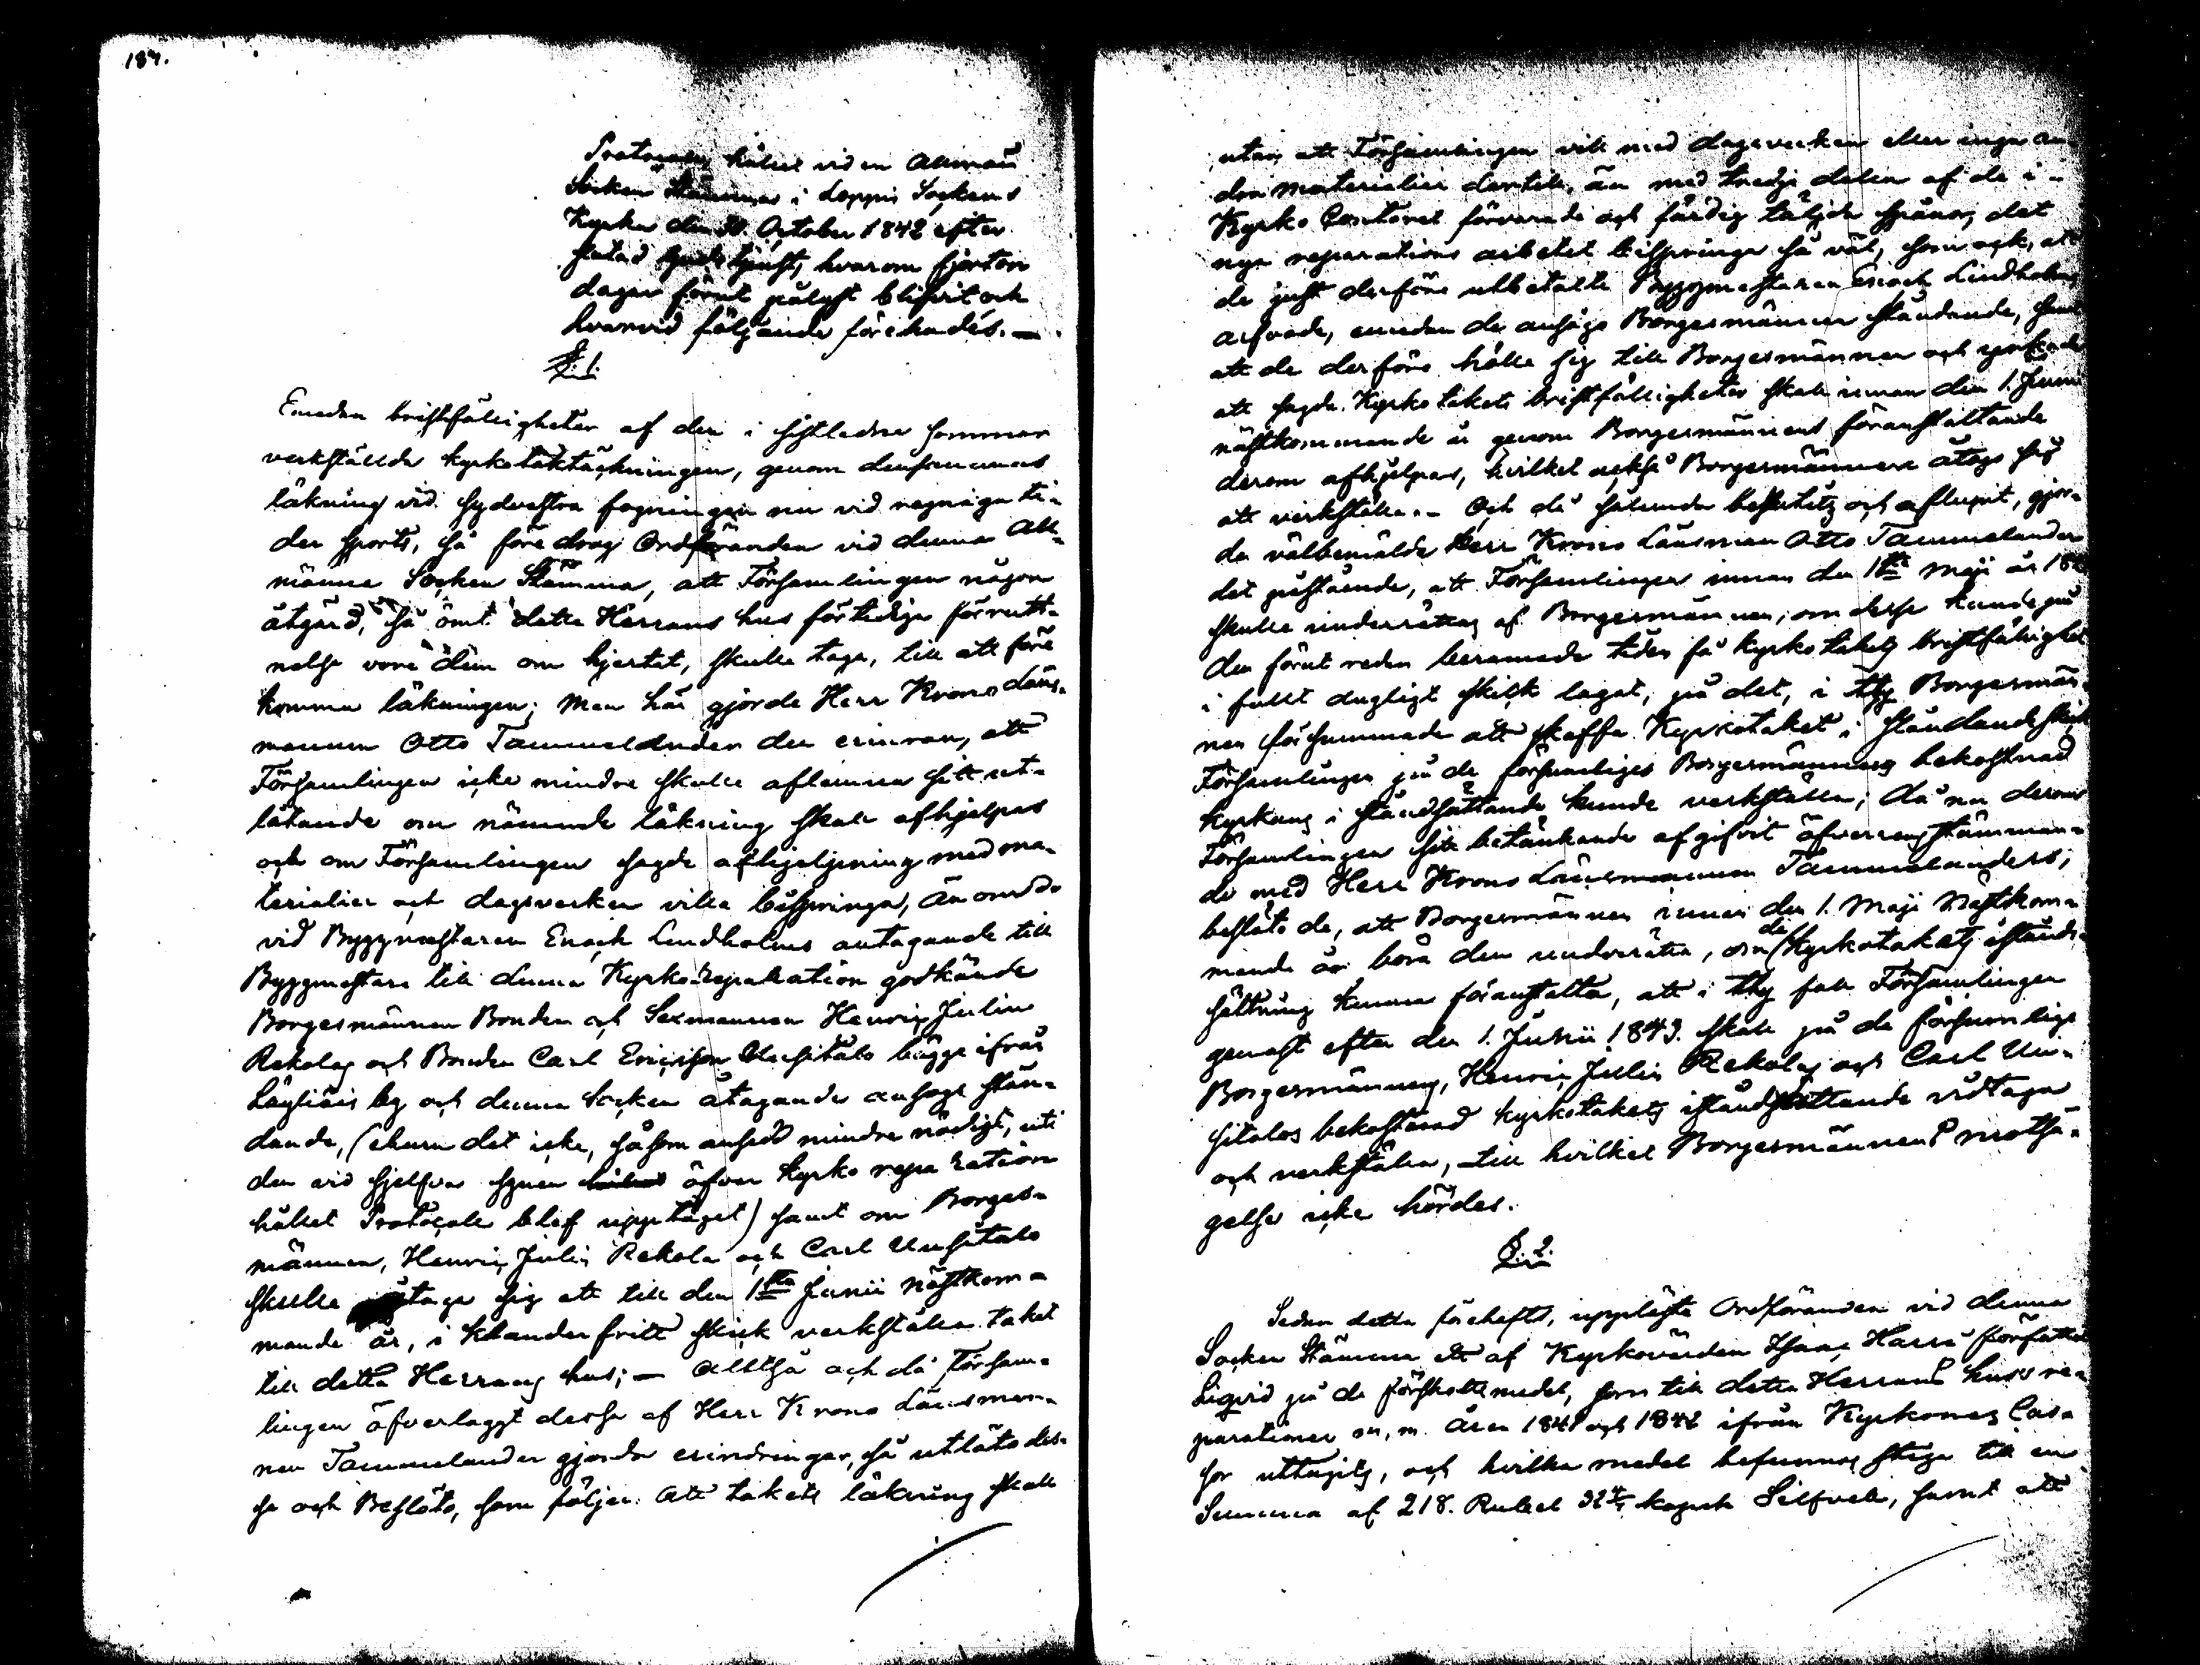 184.
Protocoll, hållet vid en Allmän
Socken Stämma i Loppis Sockens
Kyrka den 30. October 1842 efter
slutad Gudstjenst, hvarom fjorton
dagar förut pålyst blifvit och
hvarvid följande förehades. —
§. 1.
Emedan bristfälligheter af den i sistledne sommar
verkställda kyrkotaktäckningen, genom densammas
läkning vid sydvestra fogningen nu vid regniga ti-
der sports, så före drog Ordföranden vid denna All-
männa Socken Stämma, att Församlingen någon
åtgärd, så ömt detta Herrans hus förtidiga förrutt-
nelse vore dem om hjertat, skulle taga, till att före
komma läkningen; Men här gjorde Herr Krono Läns-
mannen Otto Tammelander den erinran, att
Församlingen icke mindre skulle aflemna sitt ut-
låtande om nämnde läkning skall afhjelpas
och om Församlingen sagde afhjelpning med ma-
terialier och dagsverken ville bispringa, än om de
vid Byggmästaren Enoch Lindholms antagande till
Byggmästare till denna Kyrko reparation godkände
Borgesmännen Bonden och Sexmannen Henric Julin
Rekola och Bonden Carl Ericsson Uusitalo bägge ifrån
Läyliäis by och denna Socken åtagande anságo stån-
dande, (ehuru det icke, såsom ansedd mindre nödigt, uti
den vid sjelfva synen öfver kyrko reparation
hållet Protocoll blef upptaget) samt om Borges-
männen, Henric Julin Rekola och Carl Uusitalo
skulle åtaga sig att till den 1sta Junii nästkom-
mande år, i klanderfritt skick verkställa taket
till detta Herrans hus; — Alltså och då Försam-
lingen öfverlaggt dessa af Herr Krono Länsman-
nen Tammelander gjorda erindringar, så utläto des-
se och Beslöto, som följer: Att takets läkning skall
utan att Församlingen vill med dagsverken eller inga an-
dra materialier dertill, än med tredje delen af de i
Kyrko Contoret förvarade och färdig täljda spånor, det
nya reparations arbetet bispringa så väl, som ock, att
de just derföre utbetalte Byggmästaren Enoch Lindholms
arfvode, emedan de anságo Borgesmännen ståndande, samt
att de derföre hålla sig till Borgesmännen och yrkade
att sagde Kyrko takets bristfälligheter skall innan den 1. Junii
nästkommande år genom Borgesmännens föranstaltande
derom afhjelpas, hvilket också Borgesmännen åtogo sig
att verkställa. - Och då sålunda beslutits och aflupit, gjor-
de välbemälde Herr Krono Länsman Otto Tammelander
det påstående, att Församlingen innan den 1sta Maji år 18
skulle underrättas af Borgesmännen, om desse kunde på
den förut redan beramade tiden få kyrko takets bristfällighet
i fullt dugligt skick lagat, på det, i thy Borgesmän-
nen försummade att skaffa Kyrkotaket i ståndande skick
Församlingen på de försumliges Borgesmännens bekostnad
kyrkans i ståndsättande kunde verkställa; då nu derom
Församlingen sitt betänkande afgifvit öfverensstämman-
de med Herr Krono Länsmannen Tammelanders;
beslöto de, att Borgesmännen innan den 1. Maji Nästkom-
mande år böra dem underrätta, om de Kyrkotakets iständ-
sättning kunna föranstalta, att i thy fall Församlingen
genast efter den 1. Junii 1843. skall på de försumlige
Borgesmännens, Henric Julin Rekolas och Carl Uu-
sitalos bekostnad kyrkotakets iståndsättande vidtaga
och verkställa, till hvilket Borgesmännens motsä-
gelse icke hördes.
§. 2.
Sedan detta förehafts, upplästa Ordföranden vid denna
Socken Stämma ett af Kyrkovärden Isaac Harri författad
Liqvid på de förskotts medel, som till detta Herrans huss re-
parationer m, m. åren 1841 och 1842 ifrån Kyrkones Cas-
sor uttagits, och hvilka medel befunnos stiga till en
Summa af 218. Rubel kopek Silfver, samt att